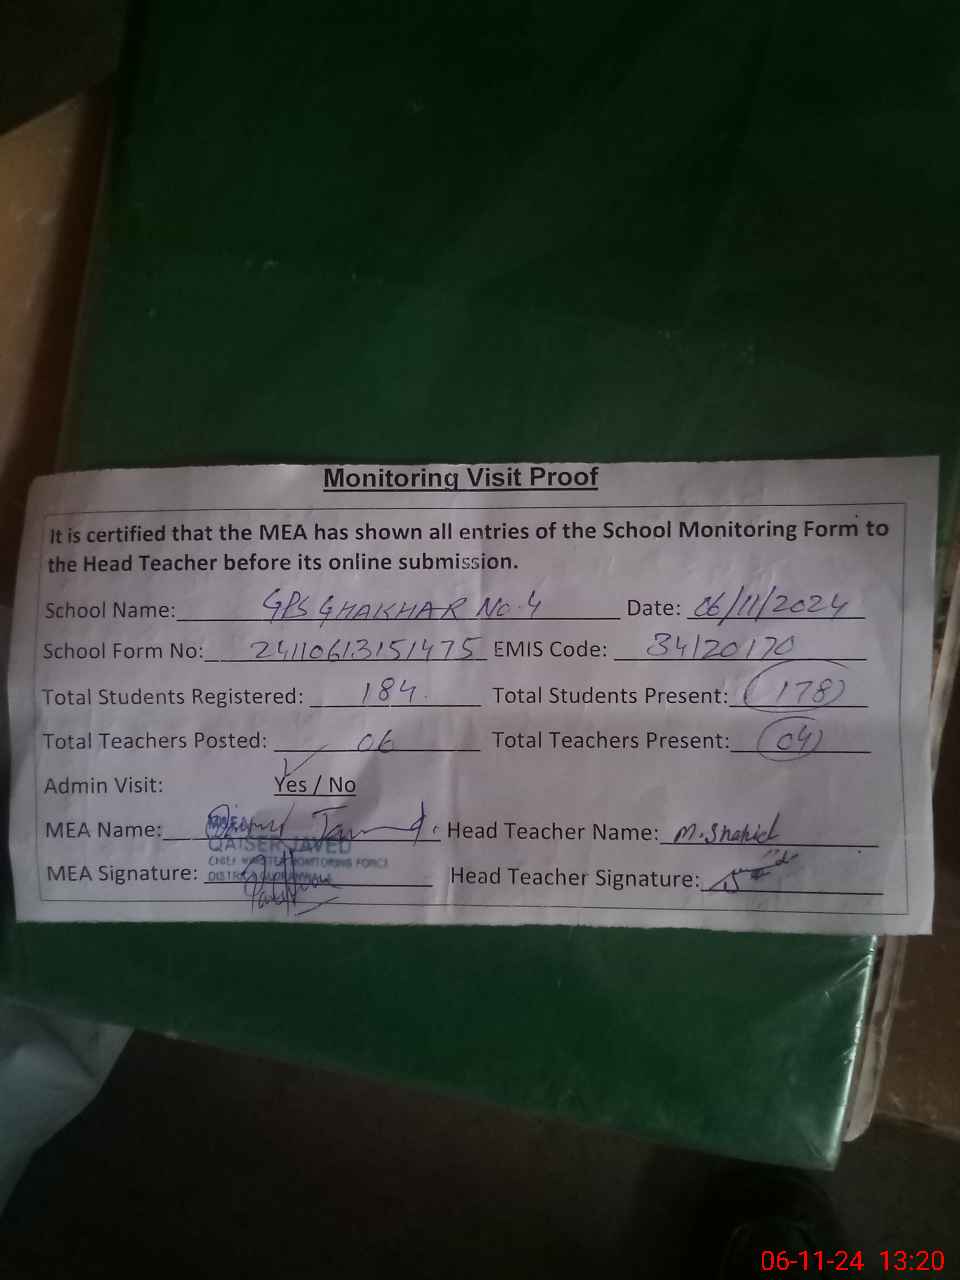 Monitoring Visit Proof
It is certified that the MEA has shown all entries of the School Monitoring Form to
the Head Teacher before its online submission.
School Name: GPS GHAKHAR No.4 Date: 06/11/2024
School Form No: 24110613151475 EMIS Code: 34120170
Total Students Registered: 184. Total Students Present: 178
Total Teachers Posted: 06 Total Teachers Present: 04
Admin Visit: Yes / No
MEA Name: Head Teacher Name: M.Shahid
QAISER JAVED
CHIEF MONITORING FORCE
MEA Signature: Head Teacher Signature:
06-11-24 13:20